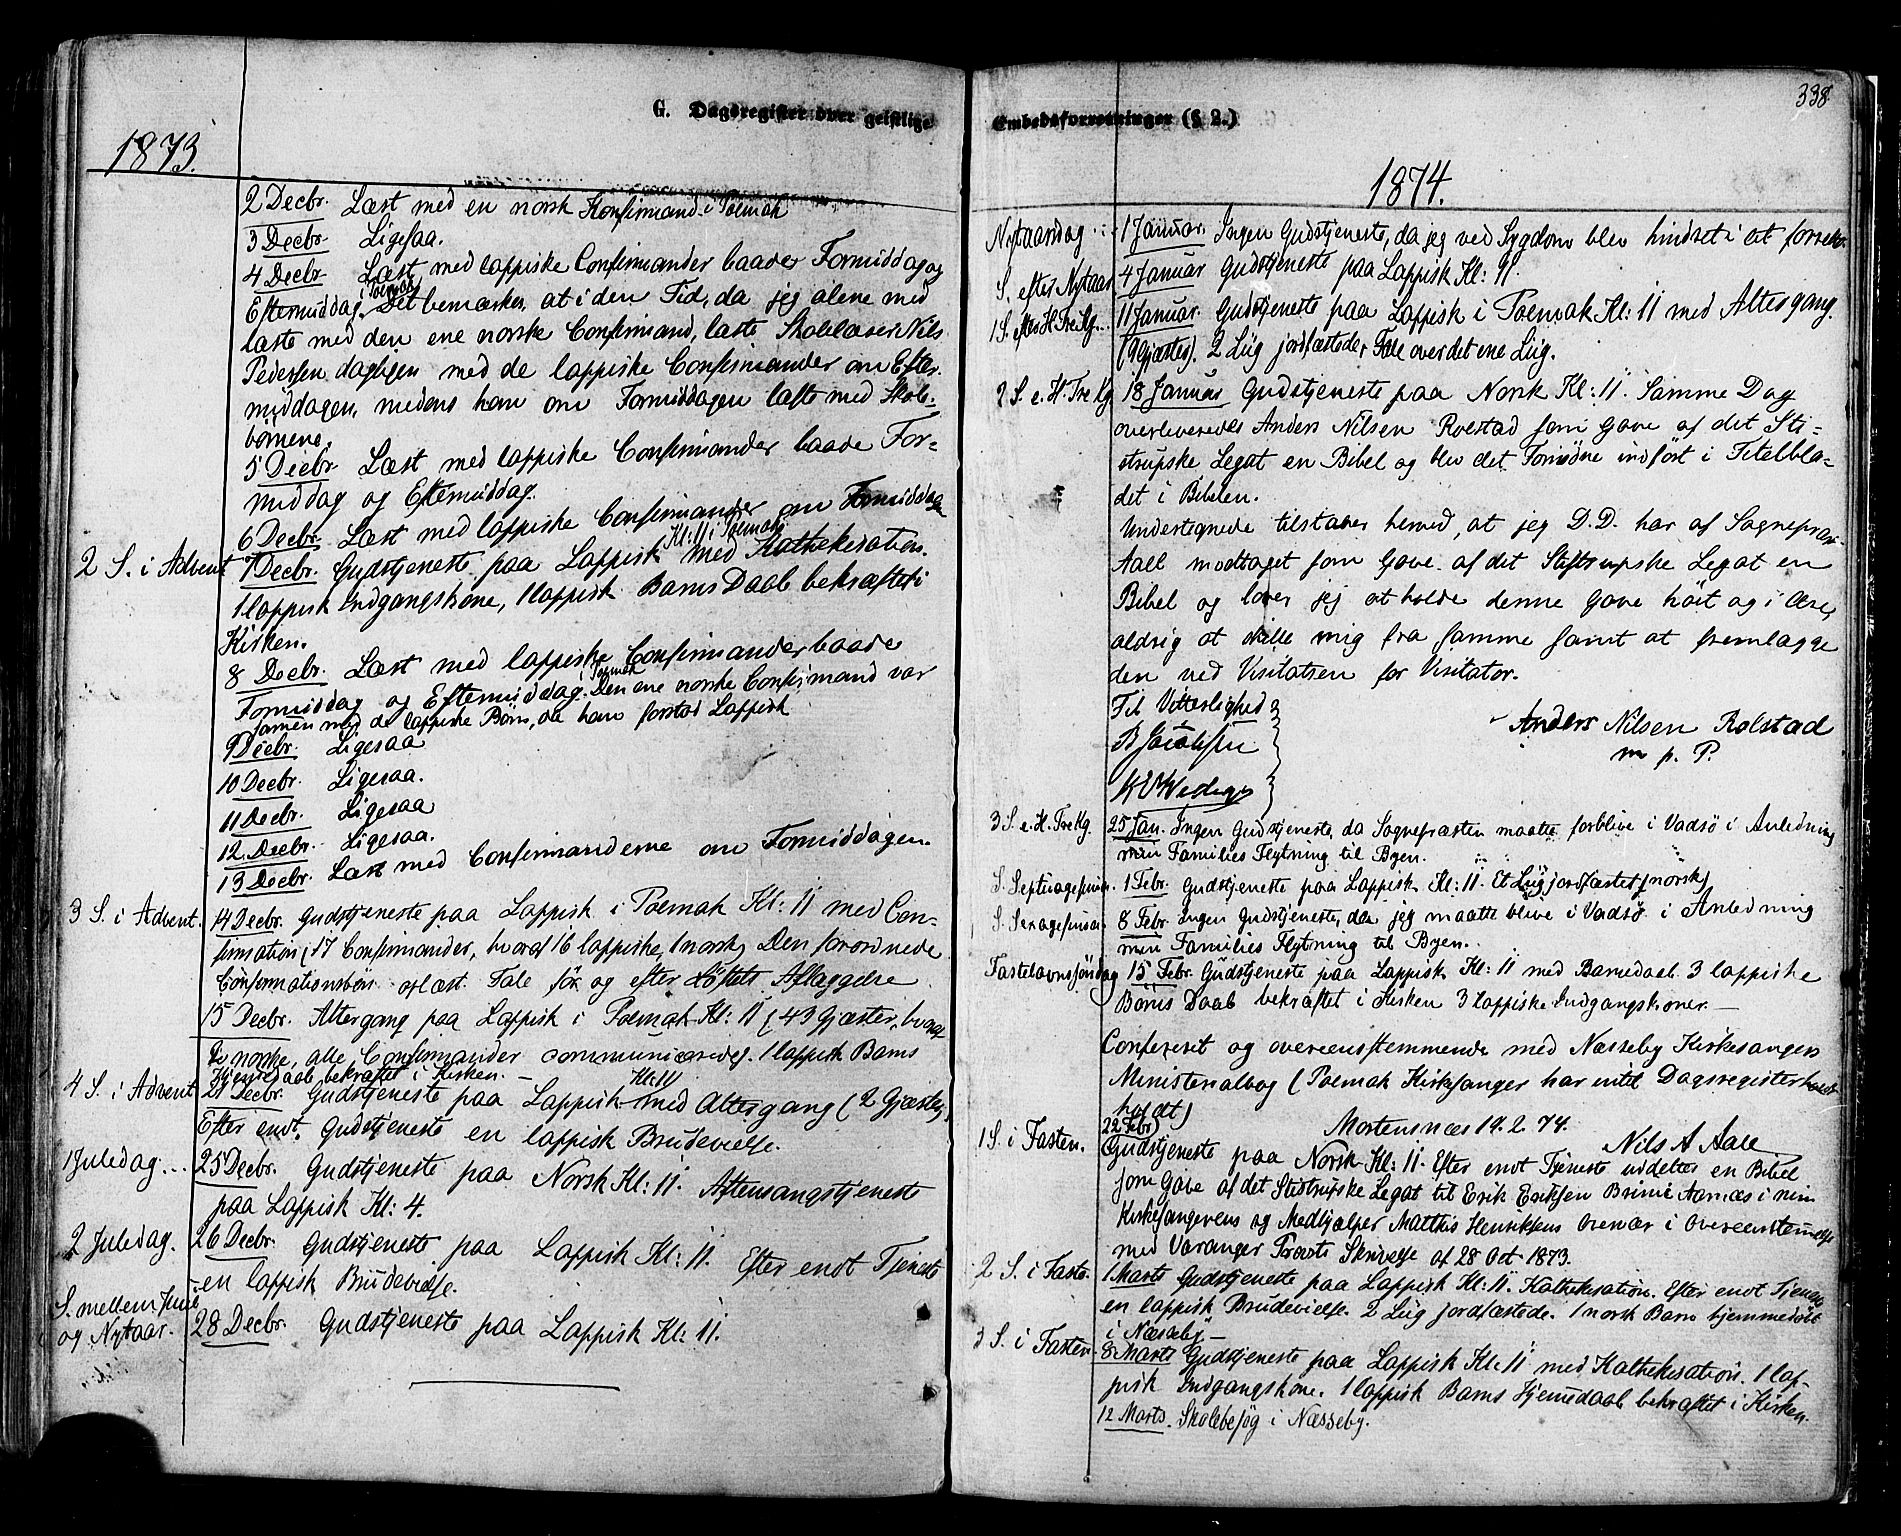 G. Dagsregister over geistlige
1873.
2 Decbr. Læst med en norsk Konfirmand i Polmak
3 Decbr. Ligesaa.
4 Decbr. Læst med lappiske Confirmander baade Formiddag og
Eftermiddag. Det bemærkes, at i den Tid, da jeg alene med
læste med den ene norske Confirmand, læste Skolelærer Nils
Pedersen dagligen med de lappiske Confirmander om Efter-
middagen, medens han om Formiddagen læste med Skole-
börnene.
5 Decbr. Læst med lappiske Confirmander baade For-
middag og Eftermiddag.
6 Decbr. Læst med lappiske Confirmander om Formiddag
Kl: 11 i Polmak
2 S. i Advent 7 Decbr. Gudstjeneste paa Lappisk med Kathekisation.
1 lappisk Indgangskone, 1 lappisk Barns Daab bekræftet i
Kirken.
8 Decbr. Læst med lappiske Confirmander baade
i Polmak
Formiddag og Eftermiddag. Den ene norske Confirmand var
sammen med de lappiske Börn, da han forstod Lappisk
9 Decbr. Ligesaa
10 Decbr. Ligesaa.
11 Decbr. Ligesaa
12 Decbr. Ligesaa.
13 Decbr. Læst med Confirmanderne om Formiddagen.
3 S. i Advent. 14 Decbr. Gudstjeneste paa Lappisk i Polmak Kl: 11 med Con-
firmation (17 Confirmander, hvoraf 16 lappiske, 1 norsk) Den forordnede
Confirmationsbön oplæst. Tale för og efter Löftets Aflæggelse
15 Decbr. Altergang paa Lappisk i Polmak Kl: 11 (43 Gjæster, hvoraf
2 norske, alle Confirmander communicerede). 1 lappisk Barns
Hjemmedaab bekræftet i Kirken.
Kl: 11
4 S. i Advent 21 Decbr. Gudstjeneste paa Lappisk med Altergang (2 Gjæster)
Efter endt Gudstjeneste en lappisk Brudevielse.
1 Juledag... 25 Decbr. Gudstjeneste paa Norsk Kl: 11. Aftensangstjeneste
paa Lappisk Kl: 4.
2 Juledag. 26 Decbr. Gudstjeneste paa Lappisk Kl: 11. Efter endt Tjeneste
en lappisk Brudevielse.
S. mellem Juul
og Nytaar. 28 Decbr. Gudstjeneste paa Lappisk Kl: 11.
Embedsforretninger (§ 2.)
338
1874.
Nytaarsdag 1 Januar. Ingen Gudstjeneste, da jeg ved Sygdom blev hindret i at forrette.
S. efter Nytaar 4 Januar Gudstjeneste paa Lappisk Kl: 11.
1 S. efter H. Tre Kg... 11 Januar. Gudstjeneste paa Lappisk i Polmak Kl: 11 med Altergang.
(9 Gjæster). 2 Liig jordfæstede, Tale over det ene Liig.
2 S. e. H. Tre Kg 18 Januar Gudstjeneste paa Norsk Kl: 11. Samme Dag
overleveredes Anders Nilsen Rolstad som Gave af det Sti-
strupske Legat en Bibel og blev det Fornödne indført i Titelbla-
det i Bibelen.
Undertegnede tilstaaer herved, at jeg D.D. har af Sognepræst
Aall modtaget som Gave af det Stiftrupske Legat en
Bibel og lover jeg at holde denne Gave höit og i Ære,
aldrig at skille mig fra samme samt at fremlægge
den ved Visitatsen for Visitator.
Til Vitterlighed
B Jacobsen
Anders Nilsen Rolstad
m p. P.
3 S. e. H. Tre Kg. 25 Jan. Ingen Gudstjeneste, da Sognepræsten maatte forblive i Vadsö i Anledning
min Families Flytning til Byen.
S. Septuagesima. 1 Febr. Gudstjeneste paa Lappisk Kl: 11. Et Liig jordfæstet (norsk)
S. Sexagesima 8 Febr. Ingen Gudstjeneste, da jeg maatte blive i Vadsø i Anledning
min Families Flytning til Byen.
Fastelavnsföndag 15 Febr. Gudstjeneste paa Lappisk Kl: 11 med Barnedaab. 3 lappiske
Barns Daab bekræftet i Kirken 3 lappiske Indgangskoner. —
Confereret og overeensstemmende med Næsseby Kirkesangers
Ministerialbog (Polmak Kirkesanger har intet Dagsregister
holdt)
Mortensnæs 19.2.74.
Nils A Aall
22 Febr)
1 S. i Fasten. Gudstjeneste paa Norsk Kl: 11. Efter endt Tjeneste uddeltes en Bibel
som Gave af det Stistrupske Legat til Erik Eriksen Aarnæs i min
Kirkesangerens og Medhjælper Mathis Henriksens Overvær i Overeenstemmelse
med Varanger Provsts Skrivelse af 28 Oct 1873.
2 S. i Faste. 1 Marts Gudstjeneste paa Lappisk Kl: 11. Kathekisation. Efter endt Tjeneste
en lappisk Brudevielse. 2 Liig jordfæstede. 1 norsk Barn hjemmedöbt
i Næsseby —
3 S. i Fasten 8 Marts Gudstjeneste paa Lappisk Kl: 11 med Kathekisation. 1 lap-
pisk Indgangskone. 1 lappisk Barns Hjemmedaab bekræftet i Kirken.
12 Marts. Skolebesög i Næsseby.